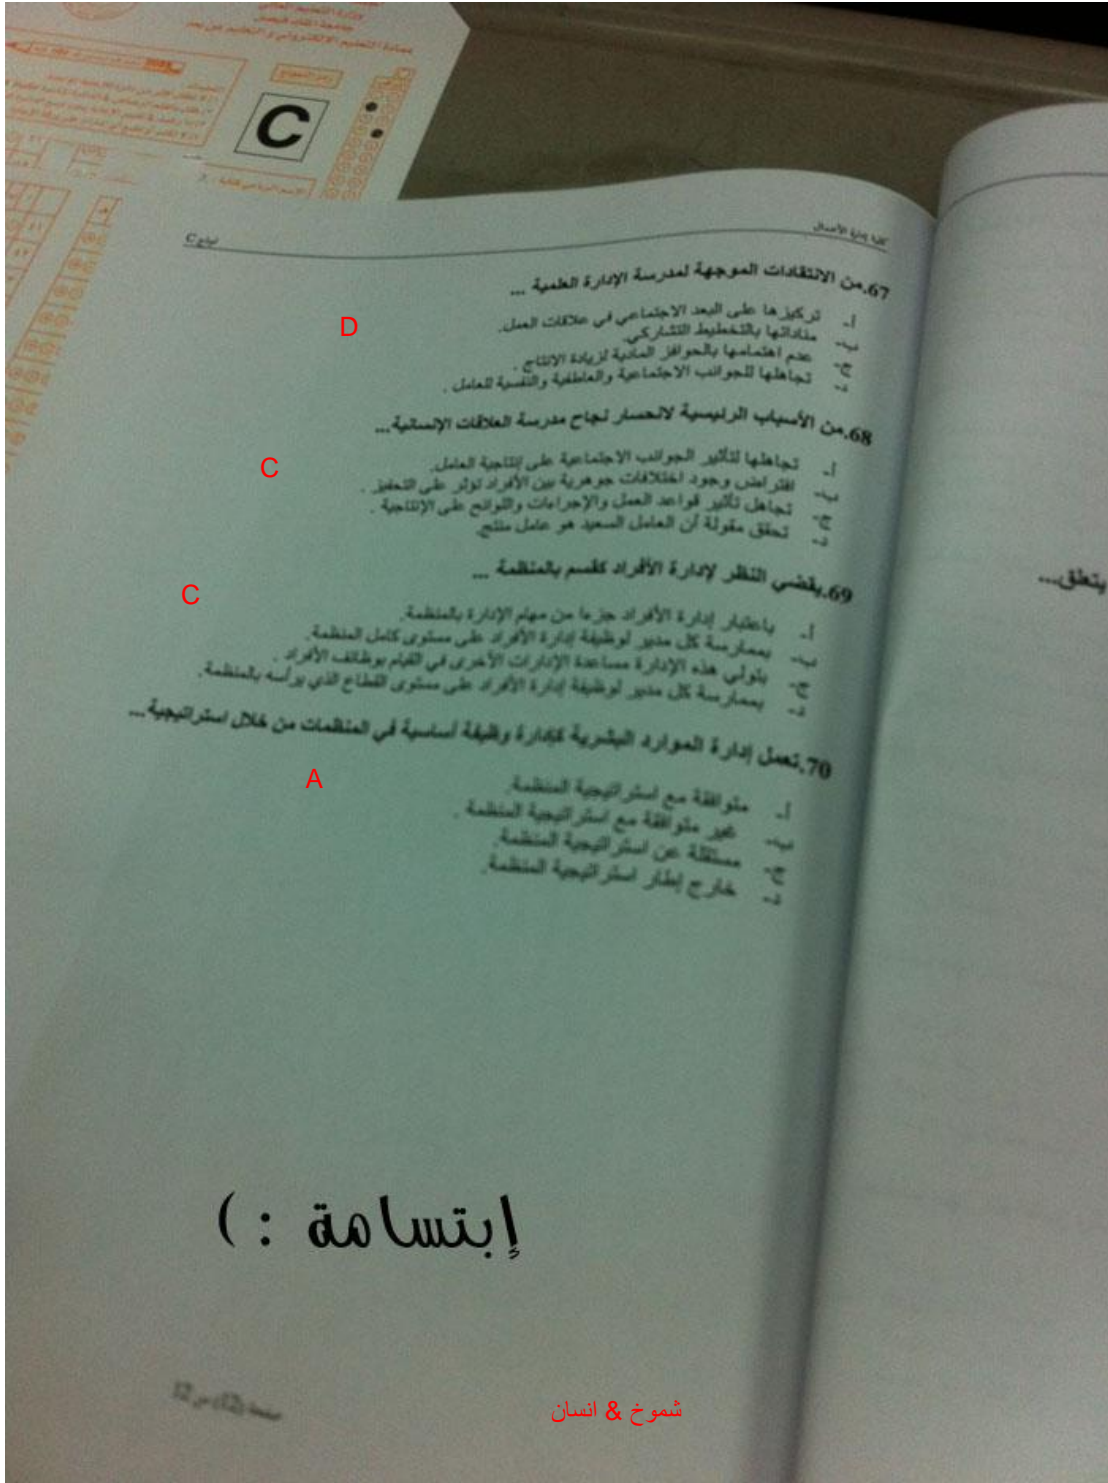 وزارة التعليم العالي
جامعة الملك فيصل
عمادة التعليم الإلكتروني والتعليم عن بعد
C
كلية إدارة الأعمال
نموذج C
67.من الانتقادات الموجهة لمدرسة الإدارة العلمية ...
أ- تركيزها على البعد الاجتماعي في علاقات العمل.
ب- مناداتها بالتخطيط التشاركي.
ج- عدم اهتمامها بالحوافز المادية لزيادة الانتاج .
د- تجاهلها للجوانب الاجتماعية والعاطفية والنفسية للعامل .
D
68.من الأسباب الرئيسية لانحسار نجاح مدرسة العلاقات الإنسانية...
أ- تجاهلها لتأثير الجوانب الاجتماعية على إنتاجية العامل.
ب- افتراض وجود اختلافات جوهرية بين الأفراد تؤثر على التحفيز .
ج- تجاهل تأثير قواعد العمل والإجراءات واللوائح على الإنتاجية .
د- تحقق مقولة أن العامل السعيد هو عامل منتج.
C
69.يقضي النظر لإدارة الأفراد كقسم بالمنظمة ...
أ- باعتبار إدارة الأفراد جزءا من مهام الإدارة بالمنظمة.
ب- بممارسة كل مدير لوظيفة إدارة الأفراد على مستوى كامل المنظمة.
ج- بتولي هذه الإدارة مساعدة الإدارات الأخرى في القيام بوظائف الأفراد .
د- بممارسة كل مدير لوظيفة إدارة الأفراد على مستوى القطاع الذي يرأسه بالمنظمة.
C
70.تعمل إدارة الموارد البشرية كإدارة وظيفة أساسية في المنظمات من خلال استراتيجية...
أ- متوافقة مع استراتيجية المنظمة.
ب- غير متوافقة مع استراتيجية المنظمة .
ج- مستقلة عن استراتيجية المنظمة.
د- خارج إطار استراتيجية المنظمة.
A
يتعلق...
إبتسامة : )
صفحة (12) من 12
شموخ & انسان